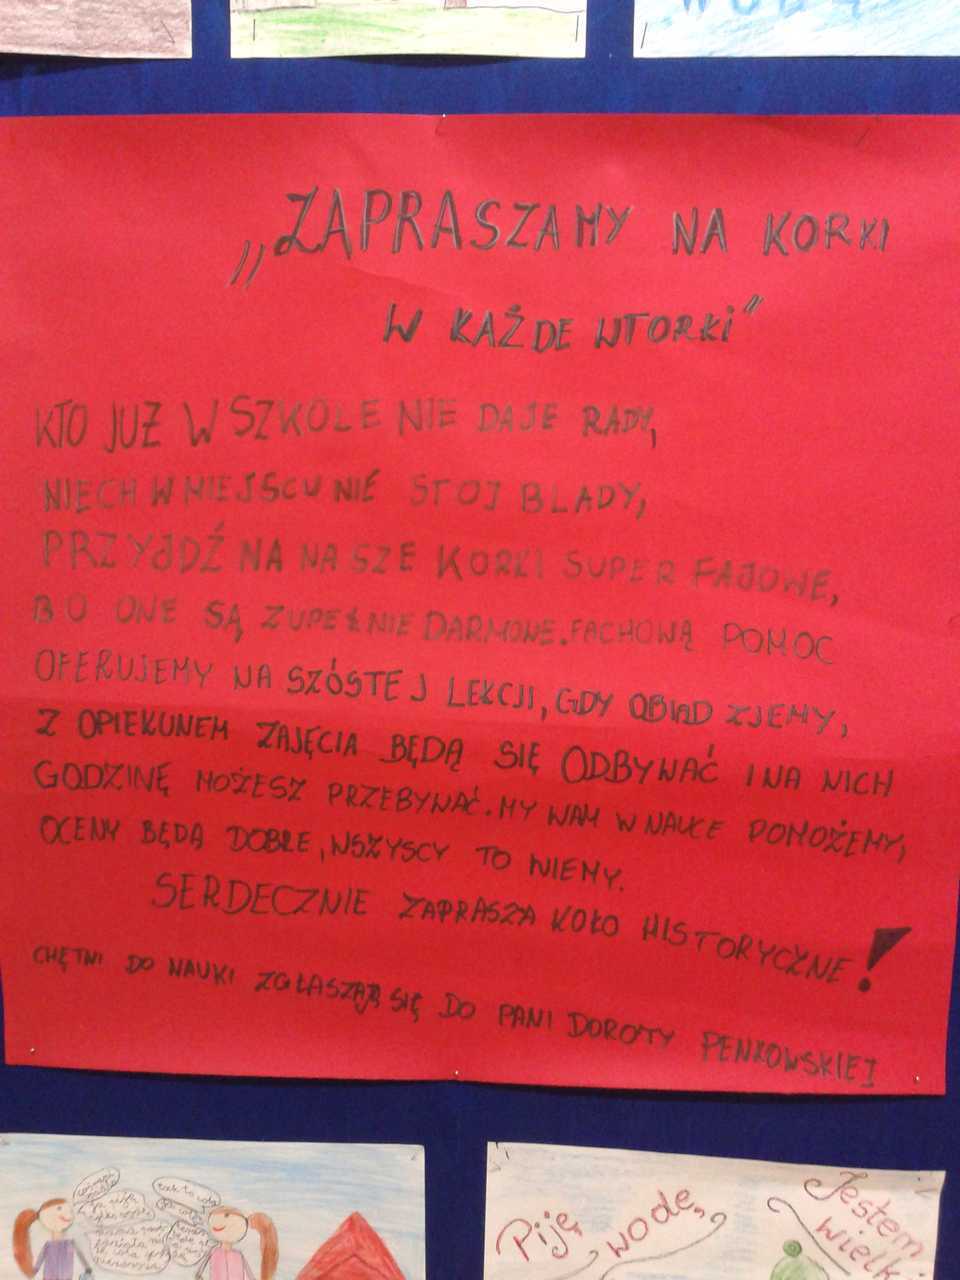 „ZAPRASZAMY NA KORKI
W KAŻDE WTORKI"
KTO JUŻ W SZKOLE NIE DAJE RADY,
NIECH W MIEJSCU NIE STOJ BLADY,
PRZYJDŹ NA NASZE KORKI SUPER FAJOWE,
BO ONE SĄ ZUPEŁNIE DARMOWE. FACHOWĄ POMOC
OFERUJEMY NA SZÓSTEJ LEKCJI, GDY OBIAD ZJEMY,
Z OPIEKUNEM ZAJĘCIA BĘDĄ SIĘ ODBYWAĆ I NA NICH
GODZINĘ MOŻESZ PRZEBYWAĆ. MY WAM W NAUCE POMOŻEMY,
OCENY BĘDĄ DOBRE, WSZYSCY TO WIEMY.
SERDECZNIE ZAPRASZA KOŁO HISTORYCZNE!
CHĘTNI DO NAUKI ZGŁASZAJĄ SIĘ DO PANI DOROTY PENKOWSKIEJ
Piję wodę,
Jestem
wielki